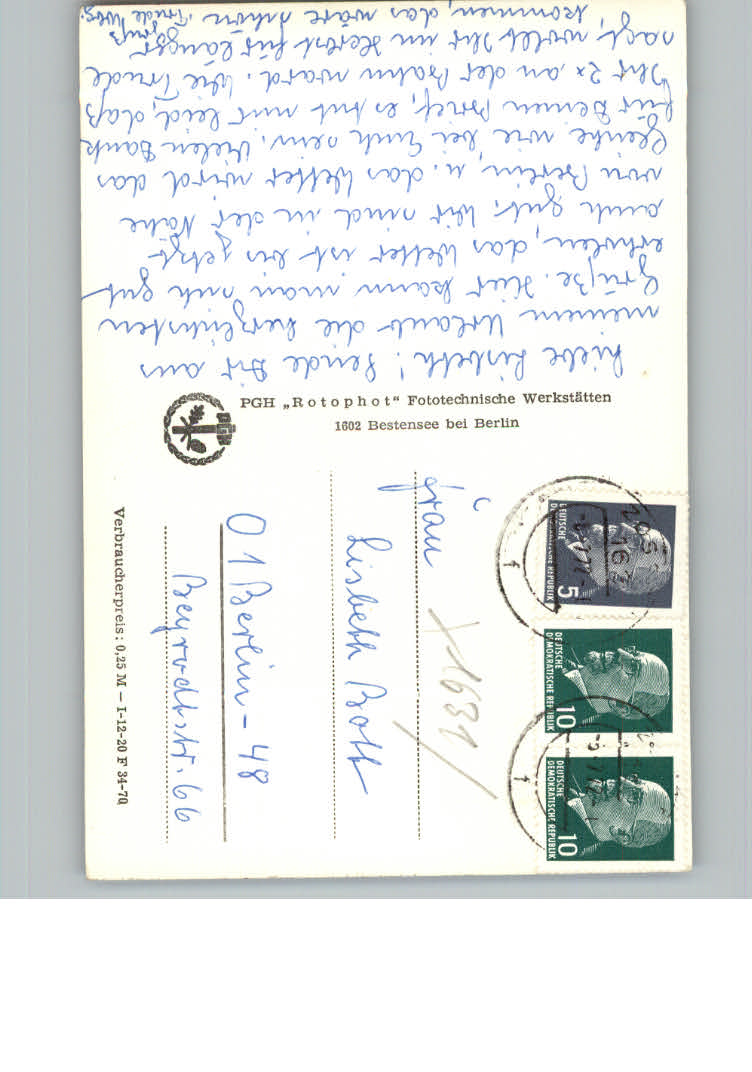 Liebe Lisbeth! Sende Dir aus
meinem Urlaub die herzlichsten
Grüße. Hier kann man sich gut
erholen, das Wetter ist bis jetzt
auch gut. Wir sind in der Nähe
von Berlin u. das Wetter wird das
Gleiche wie bei Euch sein. Vielen Dank
für Deinen Brief, es tut mir leid, daß
Ihr 2x an der Bahn ward. Wie Trude
sagt, wollt Ihr im Herbst für länger
kommen, das wäre schön.
Gruß
Trude
PGH „Rotophot“ Fototechnische Werkstätten
1602 Bestensee bei Berlin
PGH
Verbraucherpreis: 0,25 M — I-12-20 F 34-70
Frau
Lisbeth Bott
O 1 Berlin - 48
Beyrodtstr. 66
1631
DEUTSCHE
DEMOKRATISCHE REPUBLIK
5
DEUTSCHE
DEMOKRATISCHE REPUBLIK
10
DEUTSCHE
DEMOKRATISCHE REPUBLIK
10